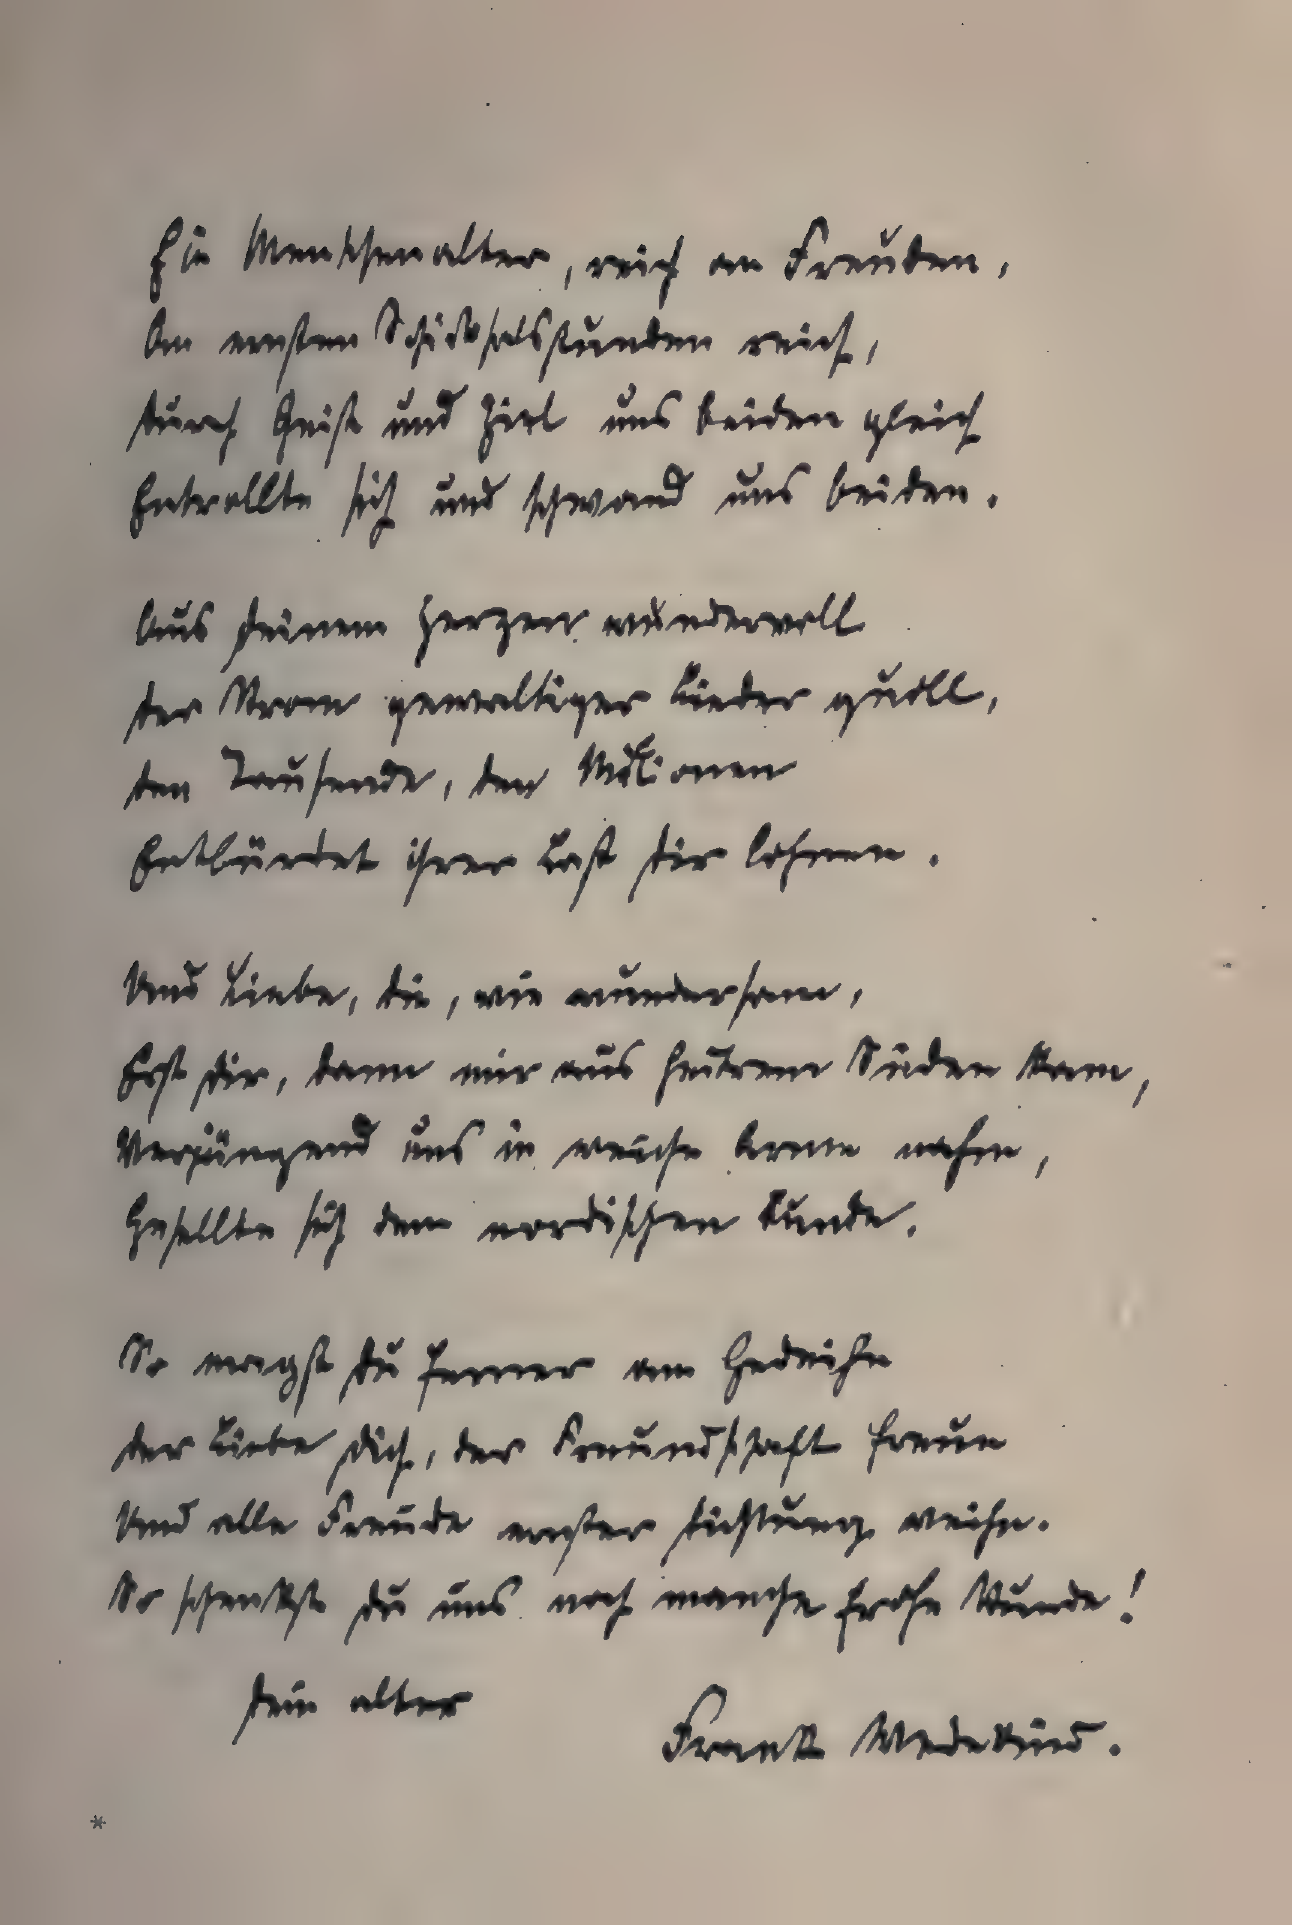 Ein Menschenalter, reich an Freuden,
An ernsten Schicksalsstunden reich,
Durch Geist und Ziel uns beiden gleich
Entrollte sich und schwand uns beiden.
Aus Deinem Herzen wundervoll
Der Strom gewaltiger Lieder quoll,
Den Tausende, den Millionen
Entbürdet ihrer Last Dir lohnen.
Und Liebe, die, wie wundersam,
Erst Dir, dann mir aus heitrem Süden kam,
Verjüngend uns in weiche Arme nahm,
Gesellte sich dem nordischen Bunde.
So magst Du ferner am Gedeihn
Der Liebe Dich, der Freundschaft freun
Und alle Freude ernster Dichtung weihn.
So schenkst Du uns noch manche frohe Stunde!
Dein alter
Frank Wedekind.
*